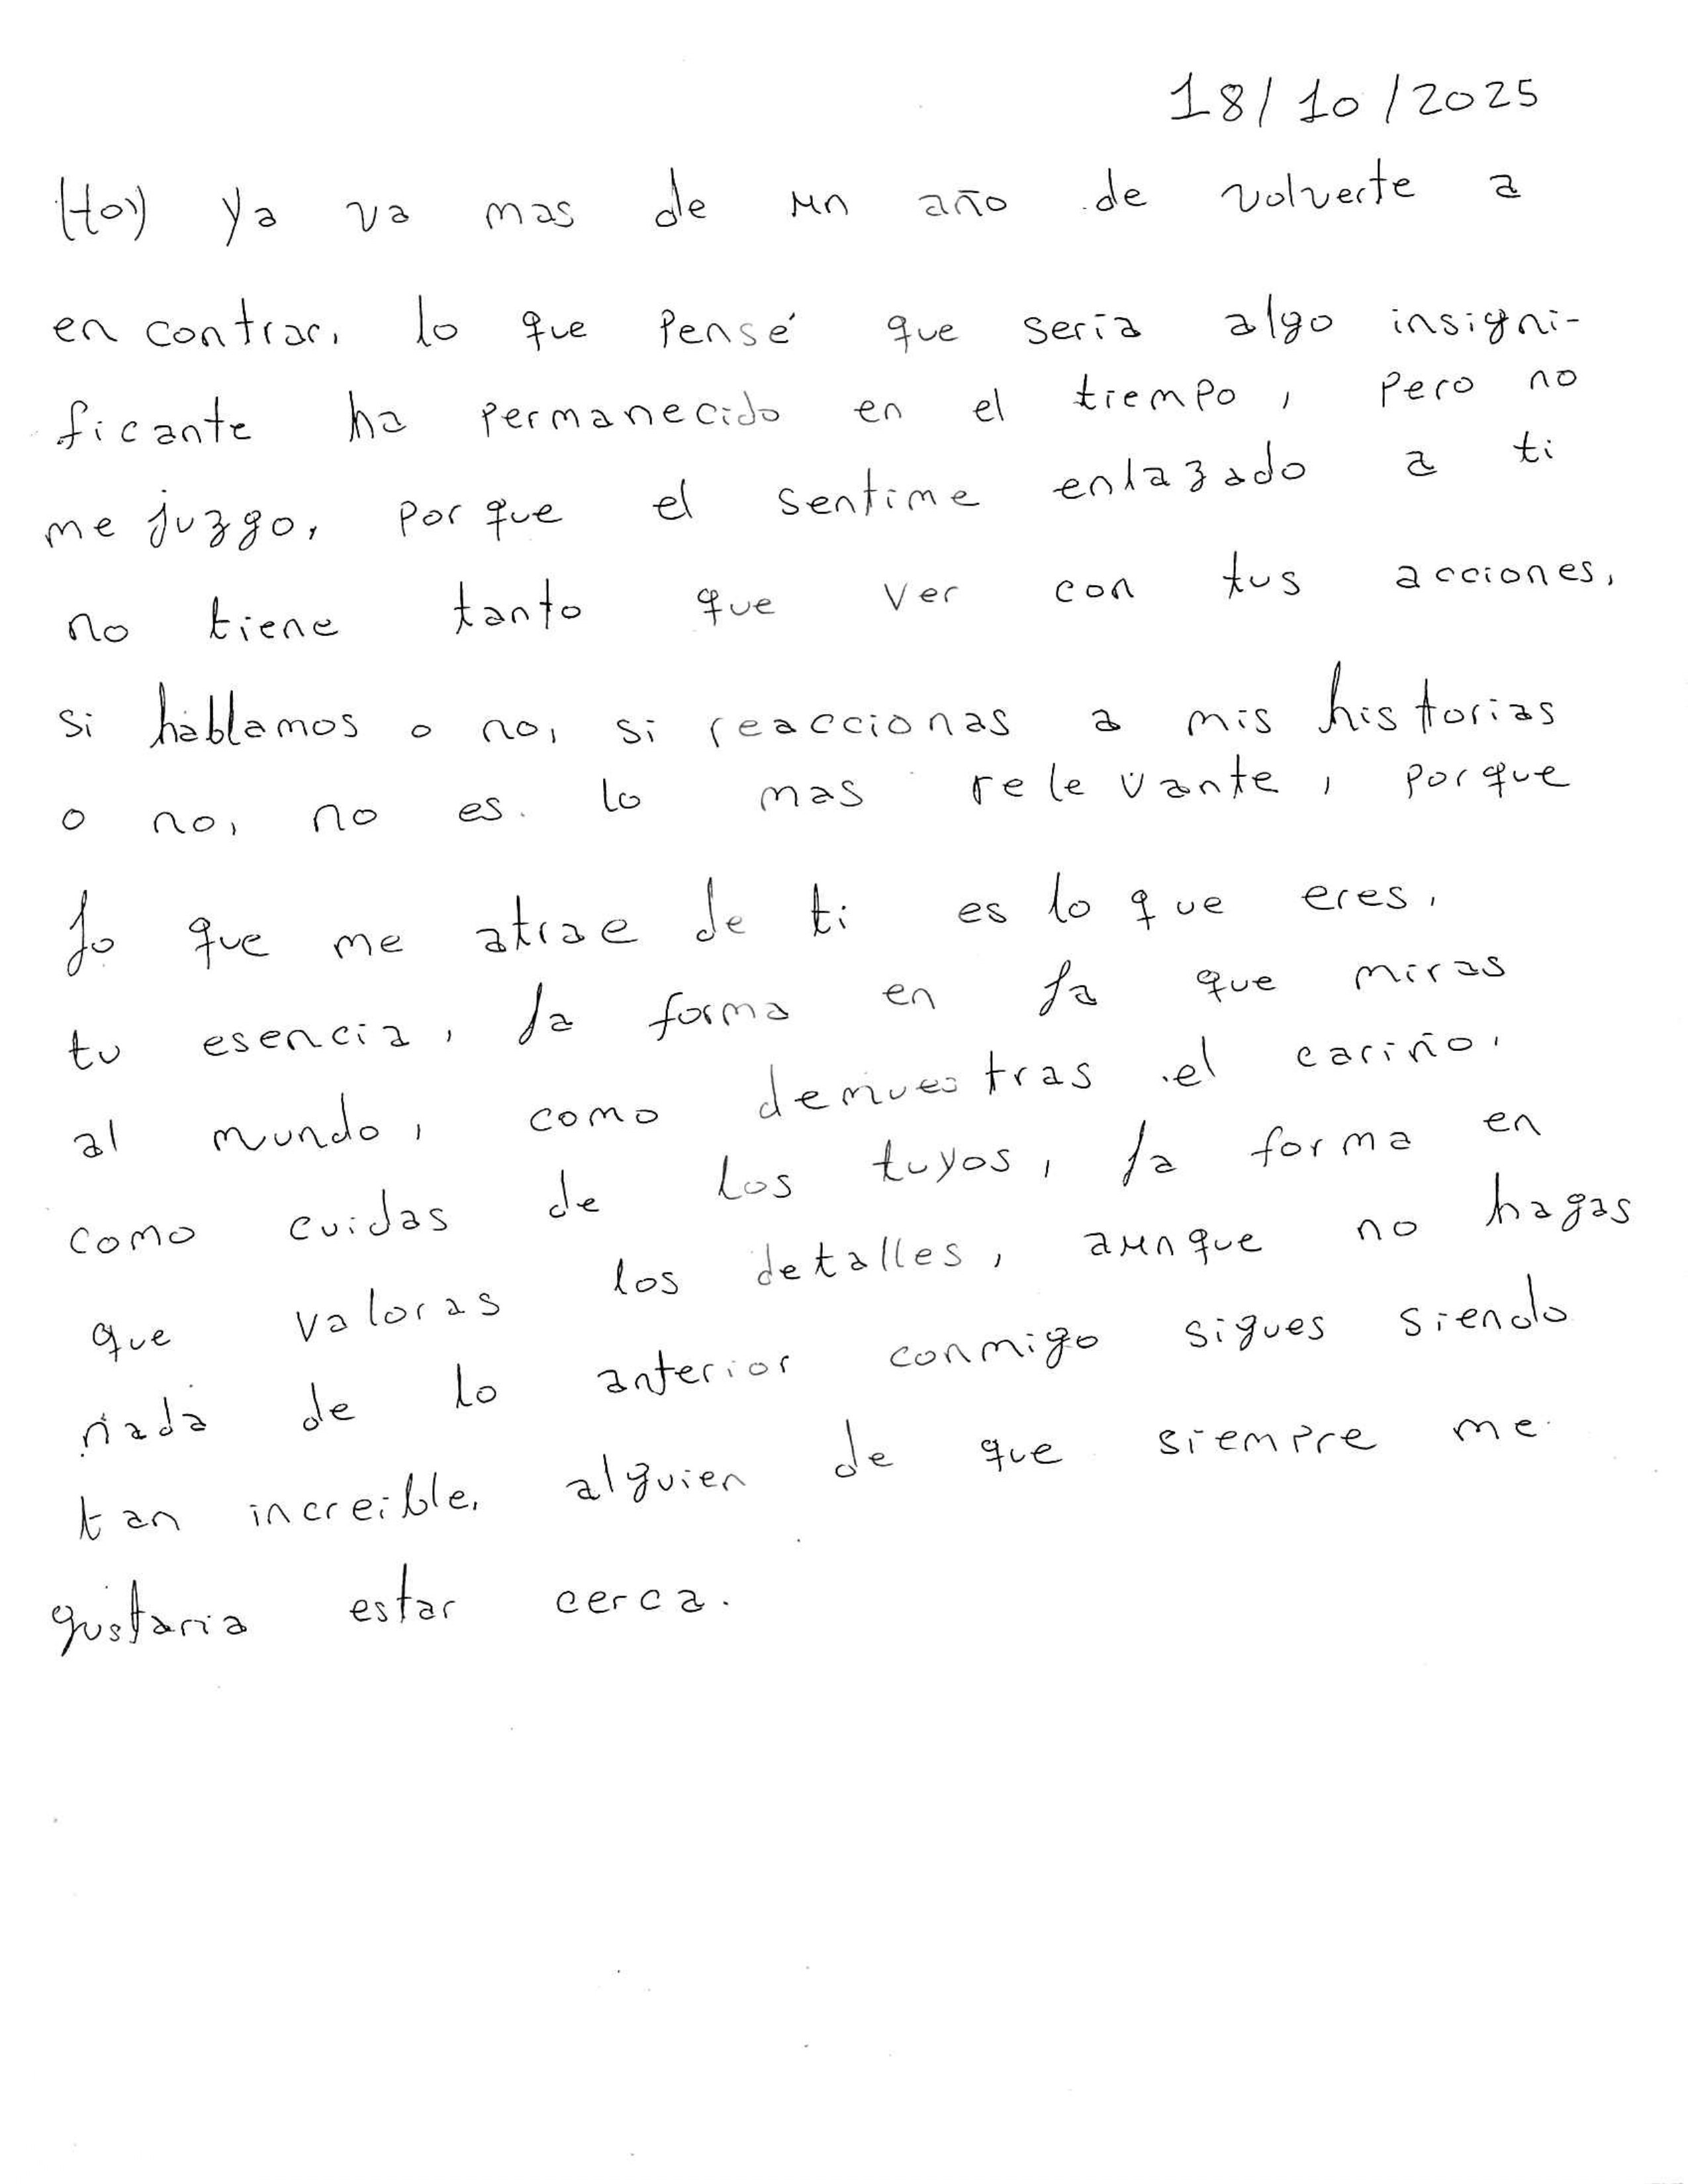 18/10/2025
Hoy ya va mas de un año de volverte a
encontrar, lo que pensé que seria algo insigni-
ficante ha permanecido en el tiempo, pero no
me juzgo, porque el sentime enlazado a ti
no tiene tanto que ver con tus acciones,
si hablamos o no, si reaccionas a mis historias
o no, no es lo mas relevante, porque
lo que me atrae de ti es lo que eres,
tu esencia, la forma en la que miras
al mundo, como demuestras el cariño,
como cuidas de los tuyos, la forma en
que valoras los detalles, aunque no hagas
nada de lo anterior conmigo sigues siendo
tan increible, alguien de que siempre me
gustaria estar cerca.